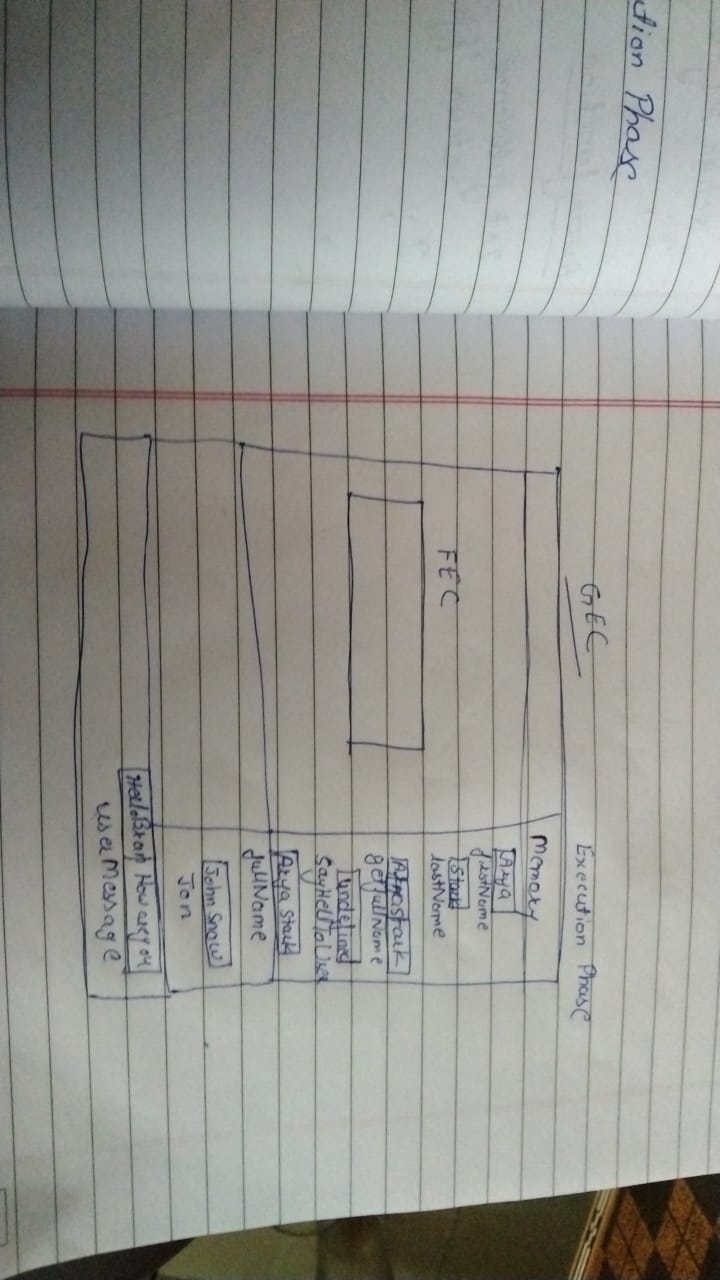 ution Phase
GEC
Execution Phase
Memory
Arya
firstName
FEC
Stark
lastName
getfullName
undefined
SayHelloToUser
Arya Stark
fullName
John Snow
Jon
Hello Bran How are you
userMessage